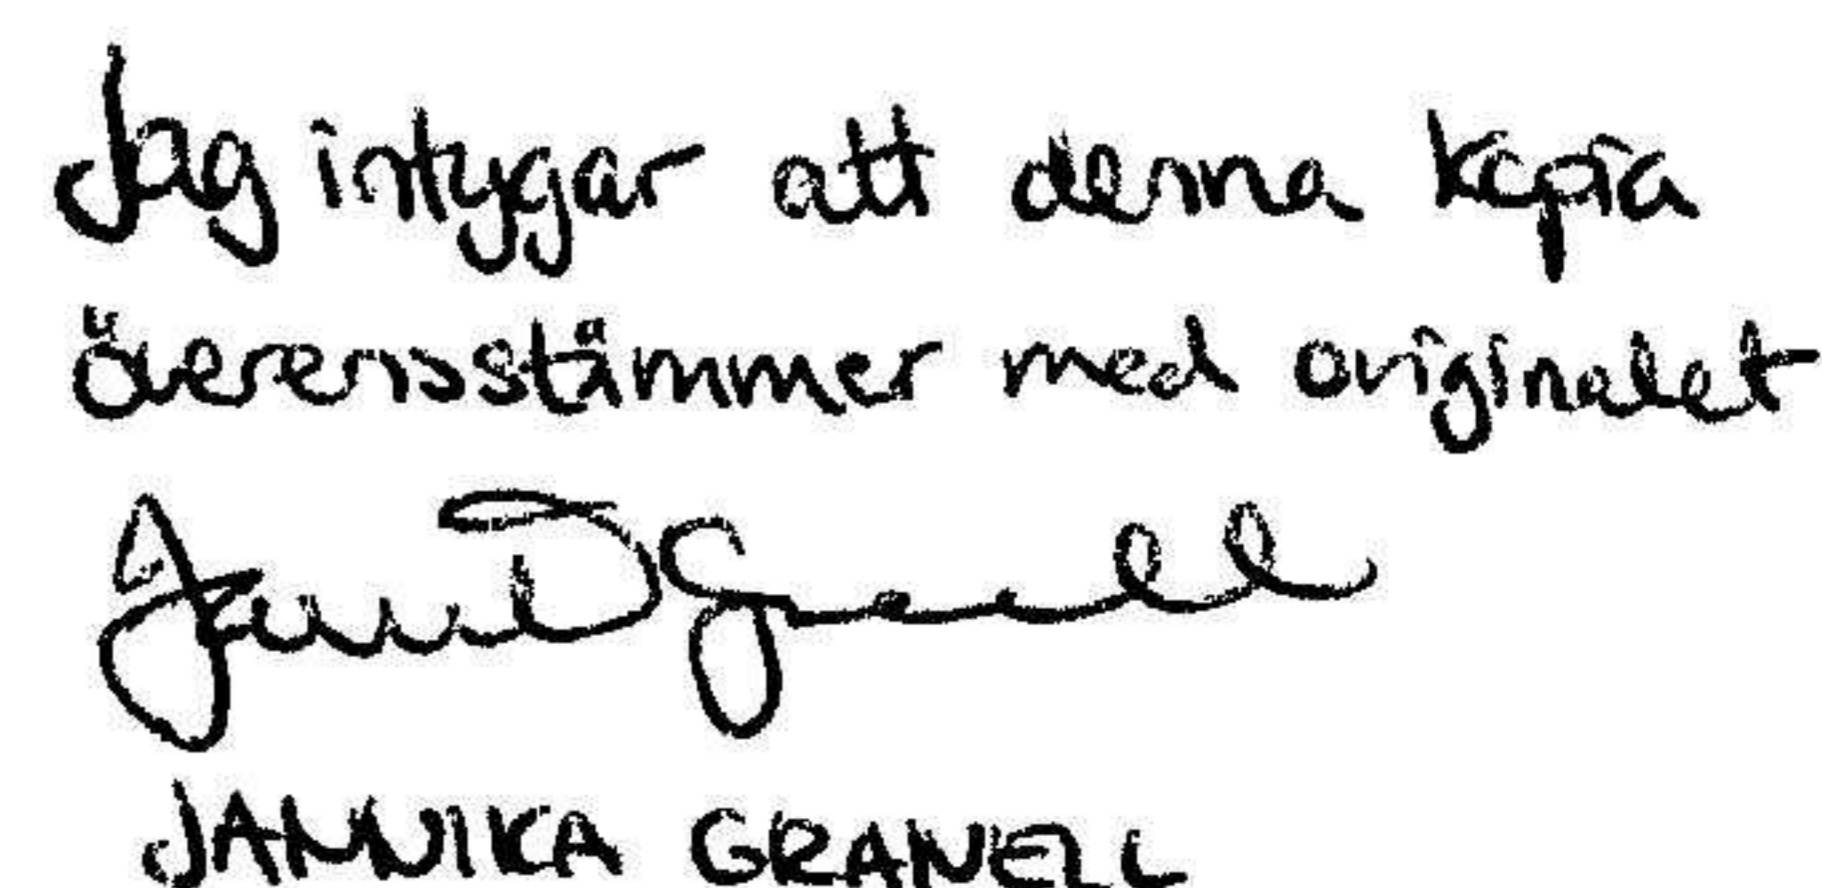 Jag intygar att denna kopia
överensstämmer med originalet
Jannika Granell
JANNIKA GRANELL